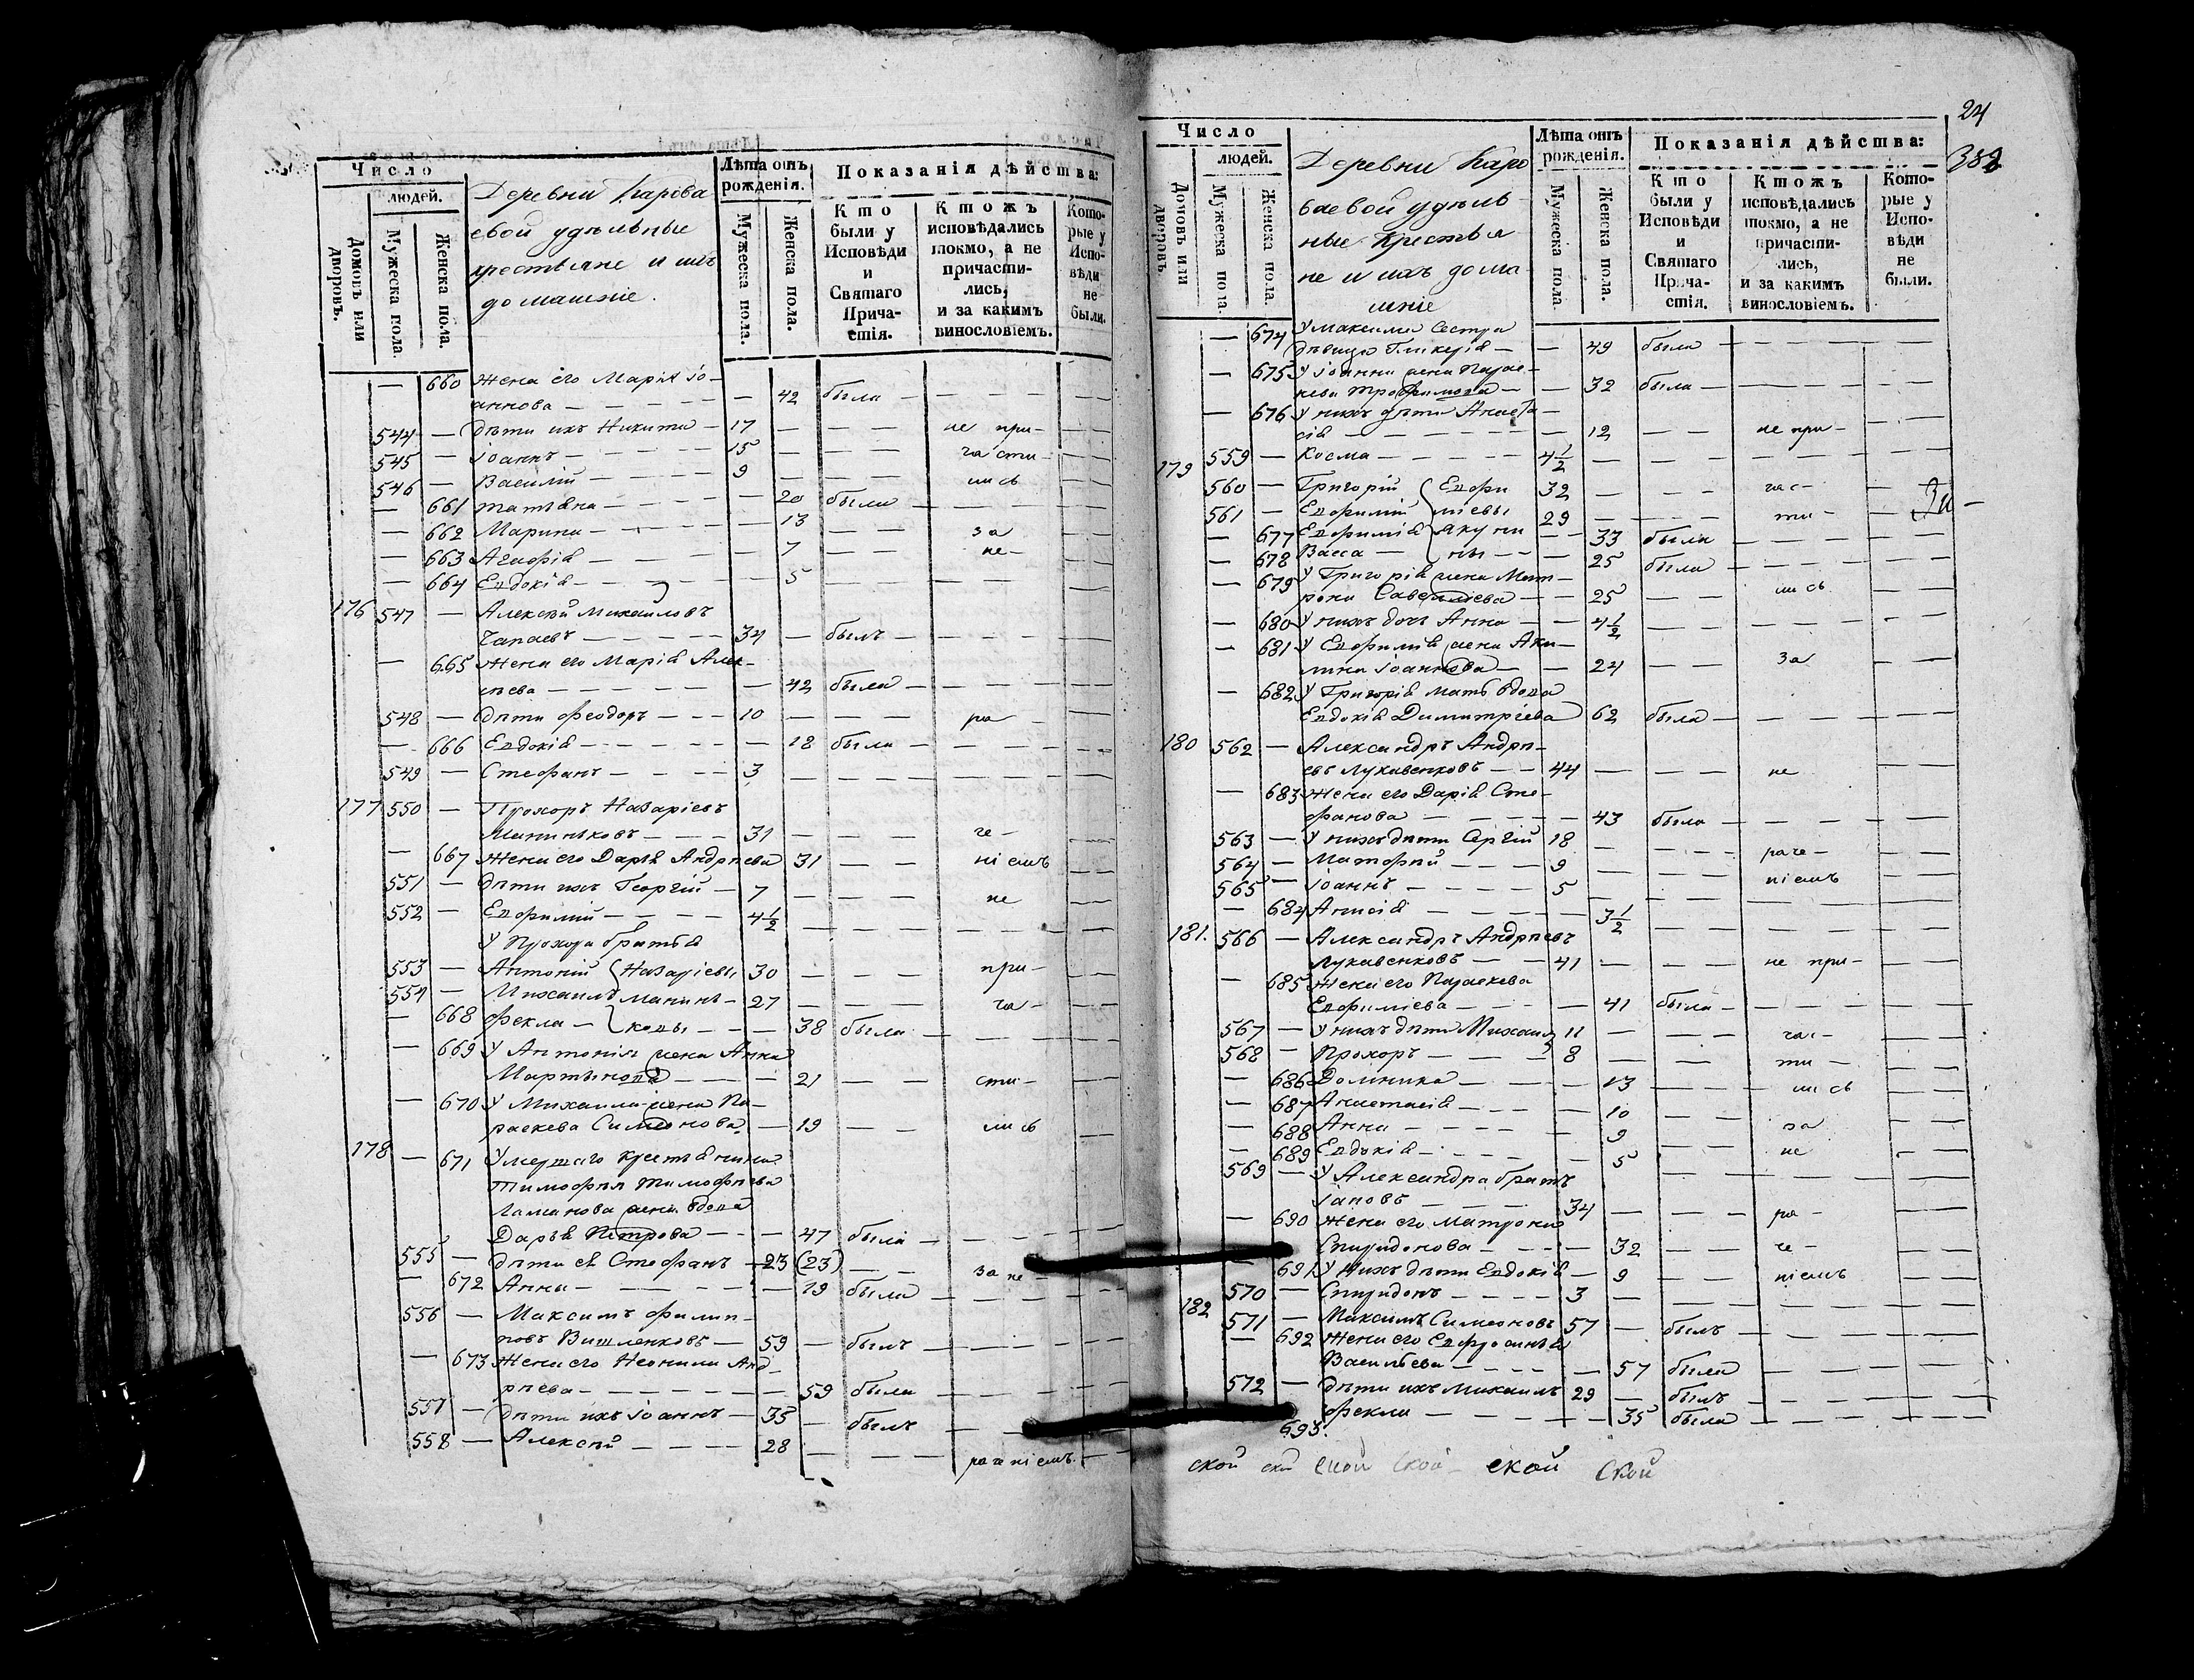 Число
людей.
Домовъ или дворовъ.
Мужеска пола.
Женска пола.
Деревни Карова
евой удѣльные
крестьяне и ихъ
домашніе.
Лѣта отъ рожденія.
Мужеска пола.
Женска пола.
Показанія дѣйства:
Кто были у Исповѣди и Святаго Причастія.
Ктожъ исповѣдались токмо, а не причастились, и за какимъ винословіемъ.
Которые у Исповѣди не были.
— 660 Жена его Марія Іо-
аннова — — 42 была — —
544 — Дѣти ихъ Никита — 17 — — не при-
545 — Іоаннъ — 15 — — части-
546 — Василий — 9 — — лись
— 661 Татьяна — — 20 была — —
— 662 Марина — — 13 — — за
— 663 Агафія — — 7 — — не-
— 664 Евдокія — — 5 — —
176 547 — Алексѣй Михаиловъ
Чапаевъ — 34 — былъ — —
— 665 Жена его Марія Алек-
сѣева — — 42 была — —
548 — Дѣти Феодоръ — 10 — — ра
— 666 Евдокія — — 18 была — —
549 — Стефанъ — 3 — —
177 550 — Прохоръ Назаріевъ
— 31 — — че-
— 667 Жена его Дарья Андреева 31 — — ніемъ
551 — Дѣти ихъ Георгій — 7 — — не
552 — Евфимій — 4½ — —
У Прохора братья
553 — Антоній Назаріевы 30 — — при-
554 — Михаилъ — 27 — — ча-
— 668 Фекла — ковы — — 38 была — —
— 669 У Антонія жена Анна
Мартынова — — 21 — — сти-
— 670 У Михаила жена Па-
раскева Симеонова — 19 — — лись
178 — 671 Умершаго крестьянина
Тимофея Тимофеева
Ламанова жена вдова
Дарья Петрова — — 47 была — —
555 — Дѣти ея Стефанъ — 23 (23) — — за не-
— 672 Анна — — 19 была — —
556 — Максимъ Филип-
повъ Вишленковъ — 59 — былъ — —
— 673 Жена его Неонила Анд-
рѣева — — 59 была — —
557 — Дѣти ихъ Іоаннъ — 35 — былъ — —
558 — Алексѣй — 28 — — раченіемъ.
24
382
Число
людей.
Домовъ или дворовъ.
Мужеска пола.
Женска пола.
Деревни Каро
ваевой удѣль
ные крестья
не и ихъ дома
шніе
Лѣта отъ рожденія.
Мужеска пола.
Женска пола.
Показанія дѣйства:
Кто были у Исповѣди и Святаго Причастія.
Ктожъ исповѣдались токмо, а не причастились, и за какимъ винословіемъ.
Которые у Исповѣди не были.
— 674 У Максима сестра
дѣвица Гликерія — — 49 была — —
— 675 У Іоанна жена Парас-
кева Трофимова — — 32 была — —
— 676 У нихъ дѣти Анаста-
сія — — 12 — — не при-
179 559 — Косма — 4½ — —
560 — Григорій Евфи 32 — — час-
561 — Евфимій міевы 29 — — ти-
— 677 Евфимія Якуни — 33 была — —
— 678 Васса — ны — — 25 была — —
— 679 У Григорія жена Мат-
рона Савельева — — 25 — — лись
— 680 У нихъ дочь Анна — — 4½ — —
— 681 У Евфимія жена Аку-
лина Іоаннова — — 24 — — за
— 682 У Григорія мать вдова
Евдокія Димитріева 62 была — —
180 562 — Александръ Андре-
евъ Лукавенковъ — 44 — — не
— 683 Жена его Дарія Сте-
фанова — — 43 была — —
563 — У нихъ дѣти Сергій 18 — — раче-
564 — Матфѣй — 9 — — ніемъ
565 — Іоаннъ — 5 — —
— 684 Анисія — — 3½ — —
181. 566 — Александръ Андреевъ
Лукавенковъ — 41 — — не при-
— 685 Жена его Параскева
Евфиміева — — 41 была — —
567 — У нихъ дѣти Михаилъ 11 — — час-
568 — Прохоръ — 8 — — ти-
— 686 Домника — — 13 — — лись
— 687 Анастасія — — 10 — —
— 688 Анна — — 9 — — за
— 689 Евдокія — — 5 — — не
569 — У Александра братъ
— 34 — — ра-
— 690 Жена его Матрона
Спиридонова — — 32 — — че-
— 691 У нихъ дѣти Евдокія — 9 — — ніемъ
570 — Спиридонъ — 3 — —
182 571 — Максимъ Симеоновъ 57 — былъ — —
— 692 Жена его Евфросинья
Васильева — — 57 была — —
572 — Дѣти ихъ Михаилъ 29 — былъ — —
693. Фекла — — 35 была — —
ской ской ской ской ской ской